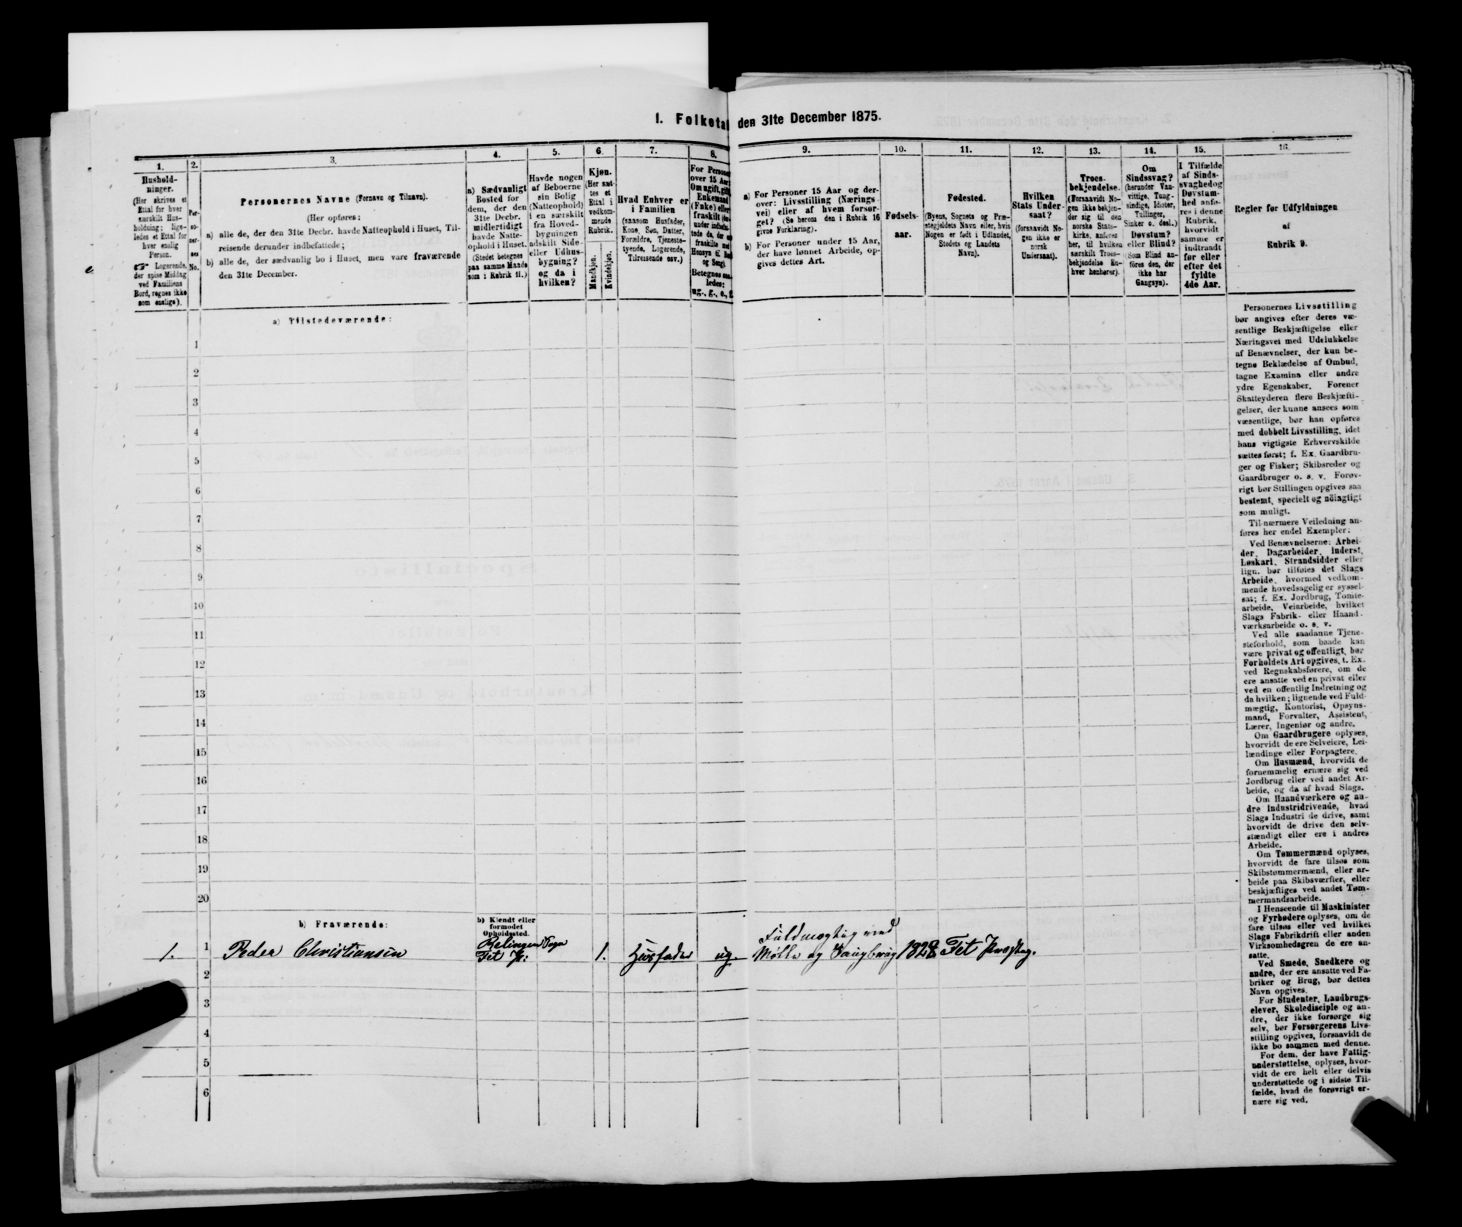 I. Folketal den 31te December 1875.
1.
2.
3.
4.
5.
6.
7.
8.
9.
10.
11.
12.
13.
14.
15.
16.
Hushold-
ninger.
(Her skrives et
Ettal for hver
særskilt Hus-
holdning; lige-
ledes et Ettal for
hver enslig
Person.
☞ Logerende,
der spise Middag
ved Familiens
Bord, regnes ikke
som enslige).
Per-
so-
ner-
nes
No.
Personernes Navne (Fornavn og Tilnavn).
(Her opføres:
a) alle de, der den 31te Decbr. havde Natteophold i Huset, Til-
reisende derunder indbefattede;
b) alle de, der sædvanlig bo i Huset, men vare fraværende
den 31te December.
a) Sædvanligt
Bosted for
dem, der den
31te Decbr.
midlertidigt
havde Natte-
ophold i Huset.
(Stedet betegnes
paa samme Maade
som i Rubrik 11.)
Havde nogen
af Beboerne
sin Bolig
(Natteophold)
i en særskilt
fra Hoved-
bygningen
adskilt Side-
eller Udhus-
bygning?
og da i
hvilken?
Kjøn.
(Her sæt-
tes et
Ettal i
vedkom-
mende
Rubrik.
Mandkjøn.
Kvindekjøn.
Hvad Enhver er
i Familien
(saasom Husfader,
Kone, Søn, Datter,
Forældre, Tjeneste-
tyende, Logerende,
Tilreisende osv.)
For Personer
over 15 Aar
Om ugift, gift,
Enkemand
(Enke) eller
fraskilt
a) For Personer 15 Aar og der-
over: Livsstilling (Nærings-
vei) eller af hvem forsør-
get? (Se herom den i Rubrik 16
givne Forklaring).
b) For Personer under 15 Aar,
der have lønnet Arbeide, op-
gives dettes Art.
Fødsels-
aar.
Fødested.
(Byens, Sognets og Præ-
stegjeldets Navn eller, hvis
Nogen er født i Udlandet,
Stedets og Landets
Navn).
Hvilken
Stats Under-
saat?
(forsaavidt No-
gen ikke er
norsk
Undersaat).
Troes-
bekjendelse.
(Forsaavidt No-
gen ikke bekjen-
der sig til den
norske Stats-
kirke, anføres
her, til hvilken
særskilt Troes-
bekjendelse En-
hver henhører).
Om
Sindssvag?
(herunder Van-
vittige, Tung-
sindige, Idioter,
Tullinger,
Sinker o. desl.)
Døvstum?
eller Blind?
(Som Blind an-
føres den, der
ikke har
Gangsyn).
I Tilfælde
af Sinds-
svaghed og
Døvstum-
hed anfø-
res i denne
Rubrik,
hvorvidt
samme er
indtraadt
før eller
efter det
fyldte
4de Aar.
Regler for Udfyldningen
af
Rubrik 9.
a) Tilstedeværende:
1
2
3
4
5
6
7
8
9
10
11
12
13
14
15
16
17
18
19
20
b) Fraværende:
b) Kjendt eller
formodet
Opholdssted.
1. 1 Peder Christiansen
Fet
1. Husfader ug.
Fuldmægtig ved
Mølle og 1828 Fet
2
3
4
5
6
Personernes Livsstilling
bør angives efter deres væ-
sentlige Beskjæftigelse eller
Næringsvei med Udelukkelse
af Benævnelser, der kun be-
tegne Beklædelse af Ombud,
tagne Examina eller andre
ydre Egenskaber. Forener
Skatteyderen flere Beskjæfti-
gelser, der kunne ansees som
væsentlige, bør han opføres
med dobbelt Livsstilling, idet
hans vigtigste Erhvervskilde
sættes først; f. Ex. Gaardbru-
ger og Fisker; Skibsreder og
Gaardbruger o. s. v. Forøv-
rigt bør Stillingen opgives saa
bestemt, specielt og nöiagtigt
som muligt.
Til nærmere Veiledning an-
føres her endel Exempler:
Ved Benævnelserne: Arbei-
der, Dagarbeider, Inderst,
Løskarl, Strandsidder eller
lign. bør tilføies det Slags
Arbeide, hvormed vedkom-
mende hovedsagelig er syssel-
sat; f. Ex. Jordbrug, Tomte-
arbeide, Veiarbeide, hvilket
Slags Fabrik- eller Haand-
værksarbeide o. s. v.
Ved alle saadanne Tjene-
steforhold, som baade kan
være privat og offentligt, bør
Forholdets Art opgives, t. Ex.
ved Regnskabsførere, om de
ere ansatte ved en privat eller
ved en offentlig Indretning og
da hvilken; lignende ved Fuld-
mægtig, Kontorist, Opsyns-
mand, Forvalter, Assistent,
Lærer, Ingeniør og andre.
Om Gaardbrugere oplyses,
hvorvidt de ere Selveiere, Lei-
lændinge eller Forpagtere.
Om Husmænd, hvorvidt de
fornemmelig ernære sig ved
Jordbrug eller ved andet Ar-
beide, og da af hvad Slags.
Om Haandværkere og an-
dre Industridrivende, hvad
Slags Industri de drive, samt
hvorvidt de drive den selv-
stændigt eller ere i andres
Arbeide.
Om Tømmermænd oplyses,
hvorvidt de fare tilsøs som
Skibstømmermænd, eller ar-
beide paa Skibsværfter, eller
beskjæftiges ved andet Tøm-
mermandsarbeide.
I Henseende til Maskinister
og Fyrbødere oplyses, om de
fare tilsøs eller ved hvilket
Slags Fabrikdrift eller anden
Virksomhedsgren de ere an-
satte.
Ved Smede, Snedkere og
andre, der ere ansatte ved Fa-
briker og Brug, bør dettes
Navn opgives.
For Studenter, Landbrugs-
elever, Skoledisciple og an-
dre, der ikke forsørge sig
selv, bør Forsørgerens Livs-
stilling opgives, forsaavidt de
ikke bo sammen med denne.
For dem, der have Fattig-
understøttelse, oplyses, hvor-
vidt de ere helt eller delvis
understøttede og i sidste Til-
fælde, hvad de forøvrigt er-
nære sig ved.